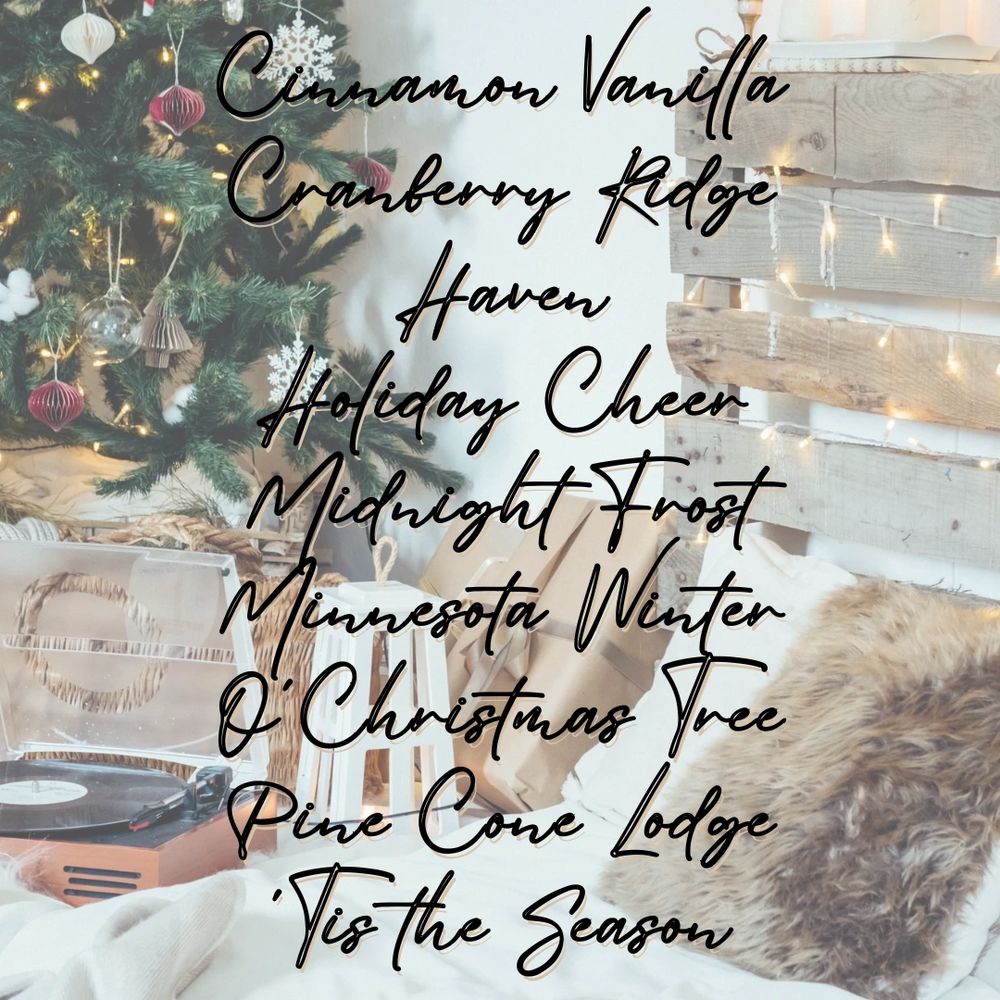 Cinnamon Vanilla
Cranberry Ridge
Haven
Holiday Cheer
Midnight Frost
Minnesota Winter
O' Christmas Tree
Pine Cone Lodge
'Tis the Season